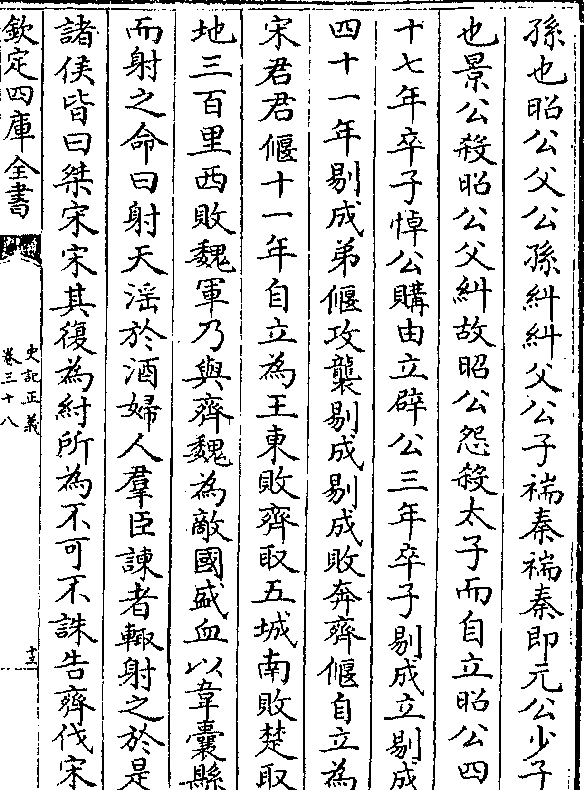 孫也昭公父公孫糾糾父公子褍秦褍秦即元公少子
也景公殺昭公父糾故昭公怨殺太子而自立昭公四
十七年卒子悼公購由立辟公三年卒子剔成立剔成
四十一年剔成弟偃攻襲剔成剔成敗奔齊偃自立為
宋君君偃十一年自立為王東敗齊取五城南敗楚取
地三百里西敗魏軍乃與齊魏為敵國盛血以韋囊縣
而射之命曰射天滛於酒婦人羣臣諫者輙射之於是
諸侯皆曰桀宋宋其復為紂所為不可不誅告齊伐宋
欽定四庫全書
史記正義
卷三十八
十三